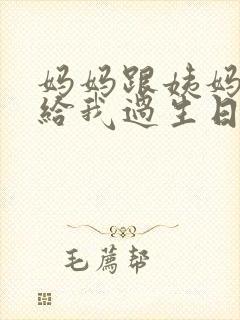 妈妈跟姨妈
給我過生日
毛薦帮